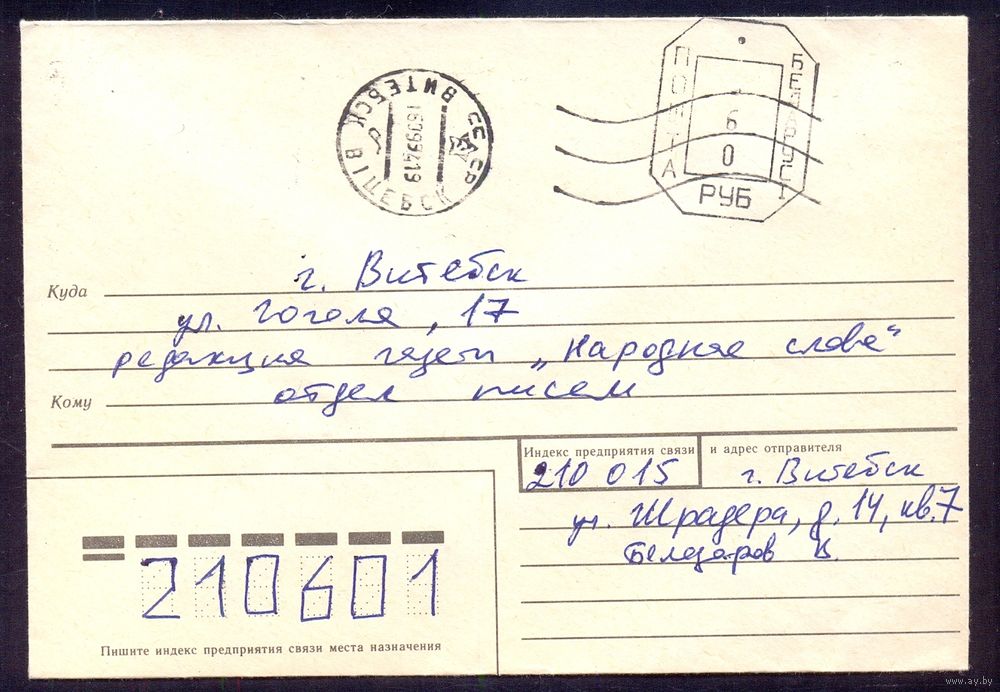 ВИТЕБСК
ВІЦЕБСК
СССР
16099319
ПОШТА
БЕЛАРУСІ
60
РУБ
Куда г. Витебск
ул. Гоголя, 17
редакция газеты „Народнае слова“
Кому отдел писем
Индекс предприятия связи и адрес отправителя
210 015 г. Витебск
ул. Шрадера, д. 14, кв. 7
В.
210601
Пишите индекс предприятия связи места назначения
www.ay.by